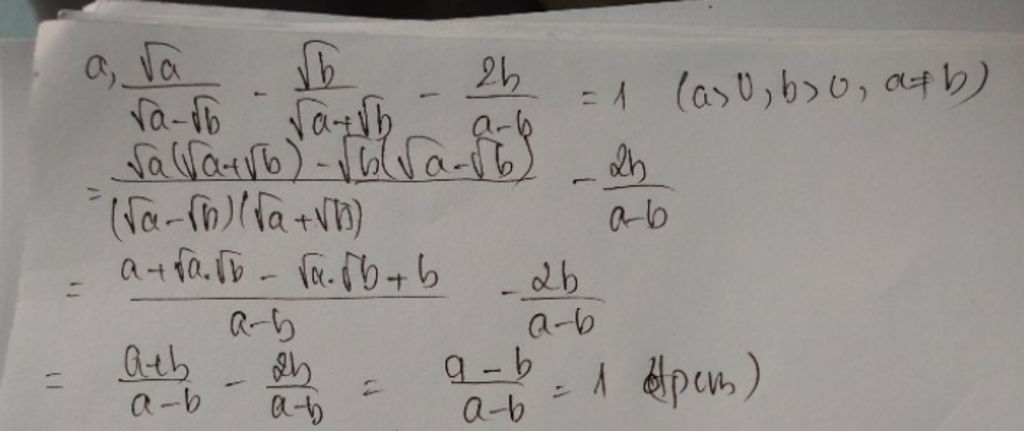 a, √a/(√a-√b) - √b/(√a+√b) - 2b/(a-b) = 1 (a>0, b>0, a≠b)
= (√a(√a+√b) - √b(√a-√b))/((√a-√b)(√a+√b)) - 2b/(a-b)
= (a+√a.√b - √a.√b+b)/(a-b) - 2b/(a-b)
= (a+b)/(a-b) - 2b/(a-b) = (a-b)/(a-b) = 1 (đpcm)